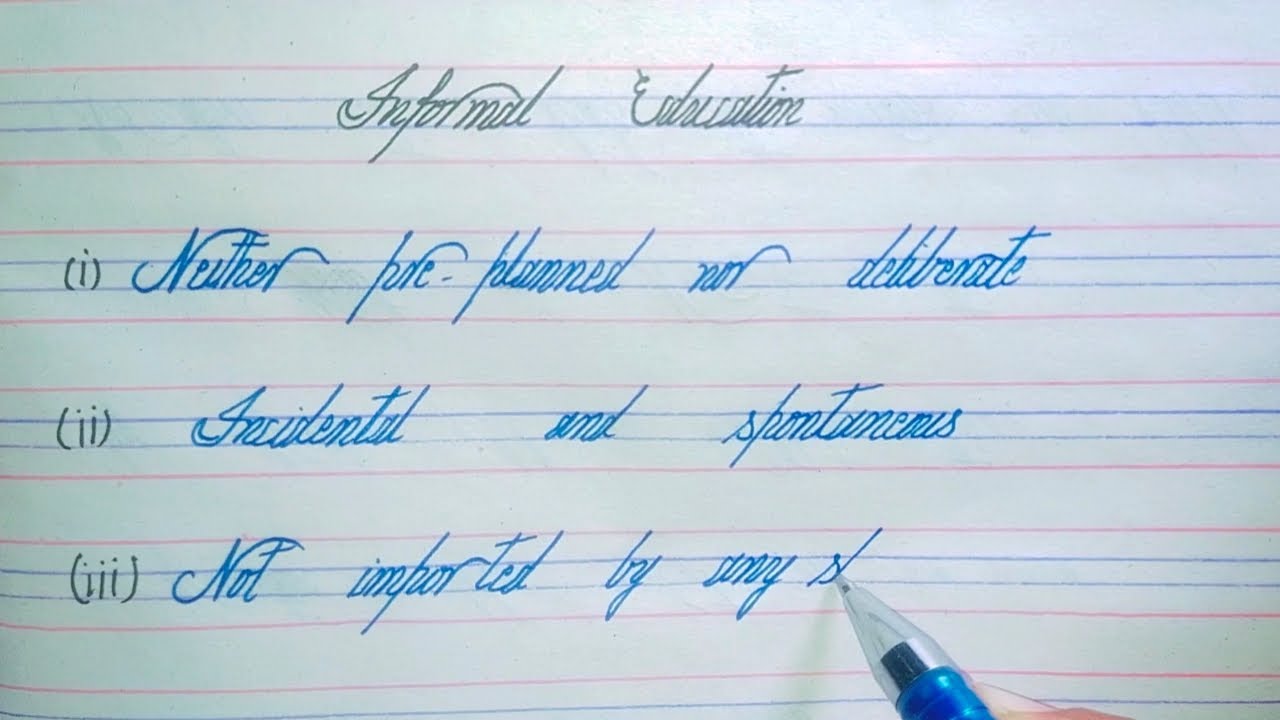 Informal Education
(i) Neither pre-planned nor deliberate
(ii) Incidental and spontaneous
(iii) Not imported by any s